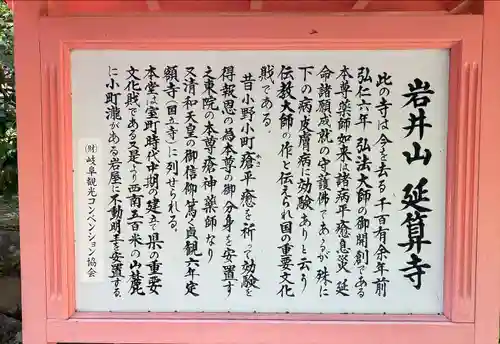 岩井山 延算寺
此の寺は今を去る千百有余年前
弘仁六年 弘法大師の御開創である
本尊薬師如来は諸病平癒息災 延
命諸願成就の守護佛であるが殊に
下の病皮膚病に効験ありと云う
伝教大師の作と伝えられ国の重要文化
財である。
昔小野小町瘡平癒を祈って効験を
得報恩の為本尊の御分身を安置す
之東院の本尊瘡神薬師なり
又清和天皇の御信仰篤く貞観六年定
願寺(国立寺)に列せられる。
本堂は室町時代中期の建立で県の重要
文化財である又是より西南五百米の山麓
に小町滝がある岩屋に不動明王を安置する。
(財)岐阜観光コンベンション協会